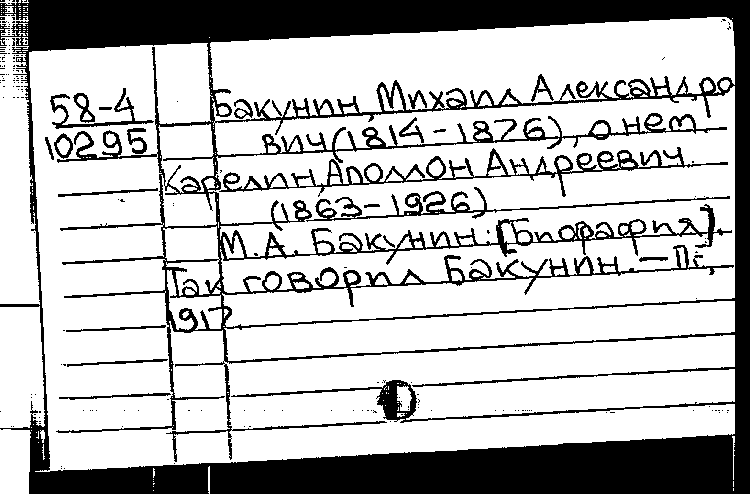 58-4 Бакунин, Михаил Александро
10295 вич (1814-1876), о нем.
Карелин, Аполлон Андреевич
(1863-1926)
М.А. Бакунин: [Биорафия].
Так говорил Бакунин. — Пг.,
1917.